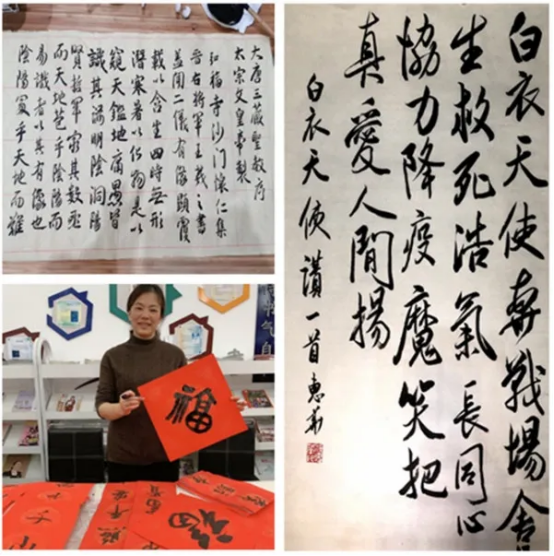 大唐三藏聖教序
太宗文皇帝製
弘福寺沙門懷仁集
晉右將軍王羲之書
蓋聞二儀有像顯覆
載以含生四時無形
潛寒暑以化物是以
窺天鑑地庸愚皆
識其端明陰洞陽
賢哲罕窮其數然
而天地苞乎陰陽而
易識者以其有像也
陰陽處乎天地而難
白衣天使奔戰場舍
生救死浩氣長同心
協力降疫魔笑把
真愛人間揚
白衣天使讚一首
福
福